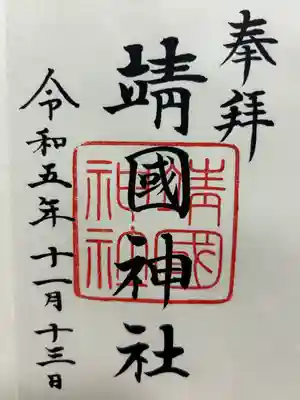 奉拝
靖國神社
靖國
神社
令和五年十一月十三日